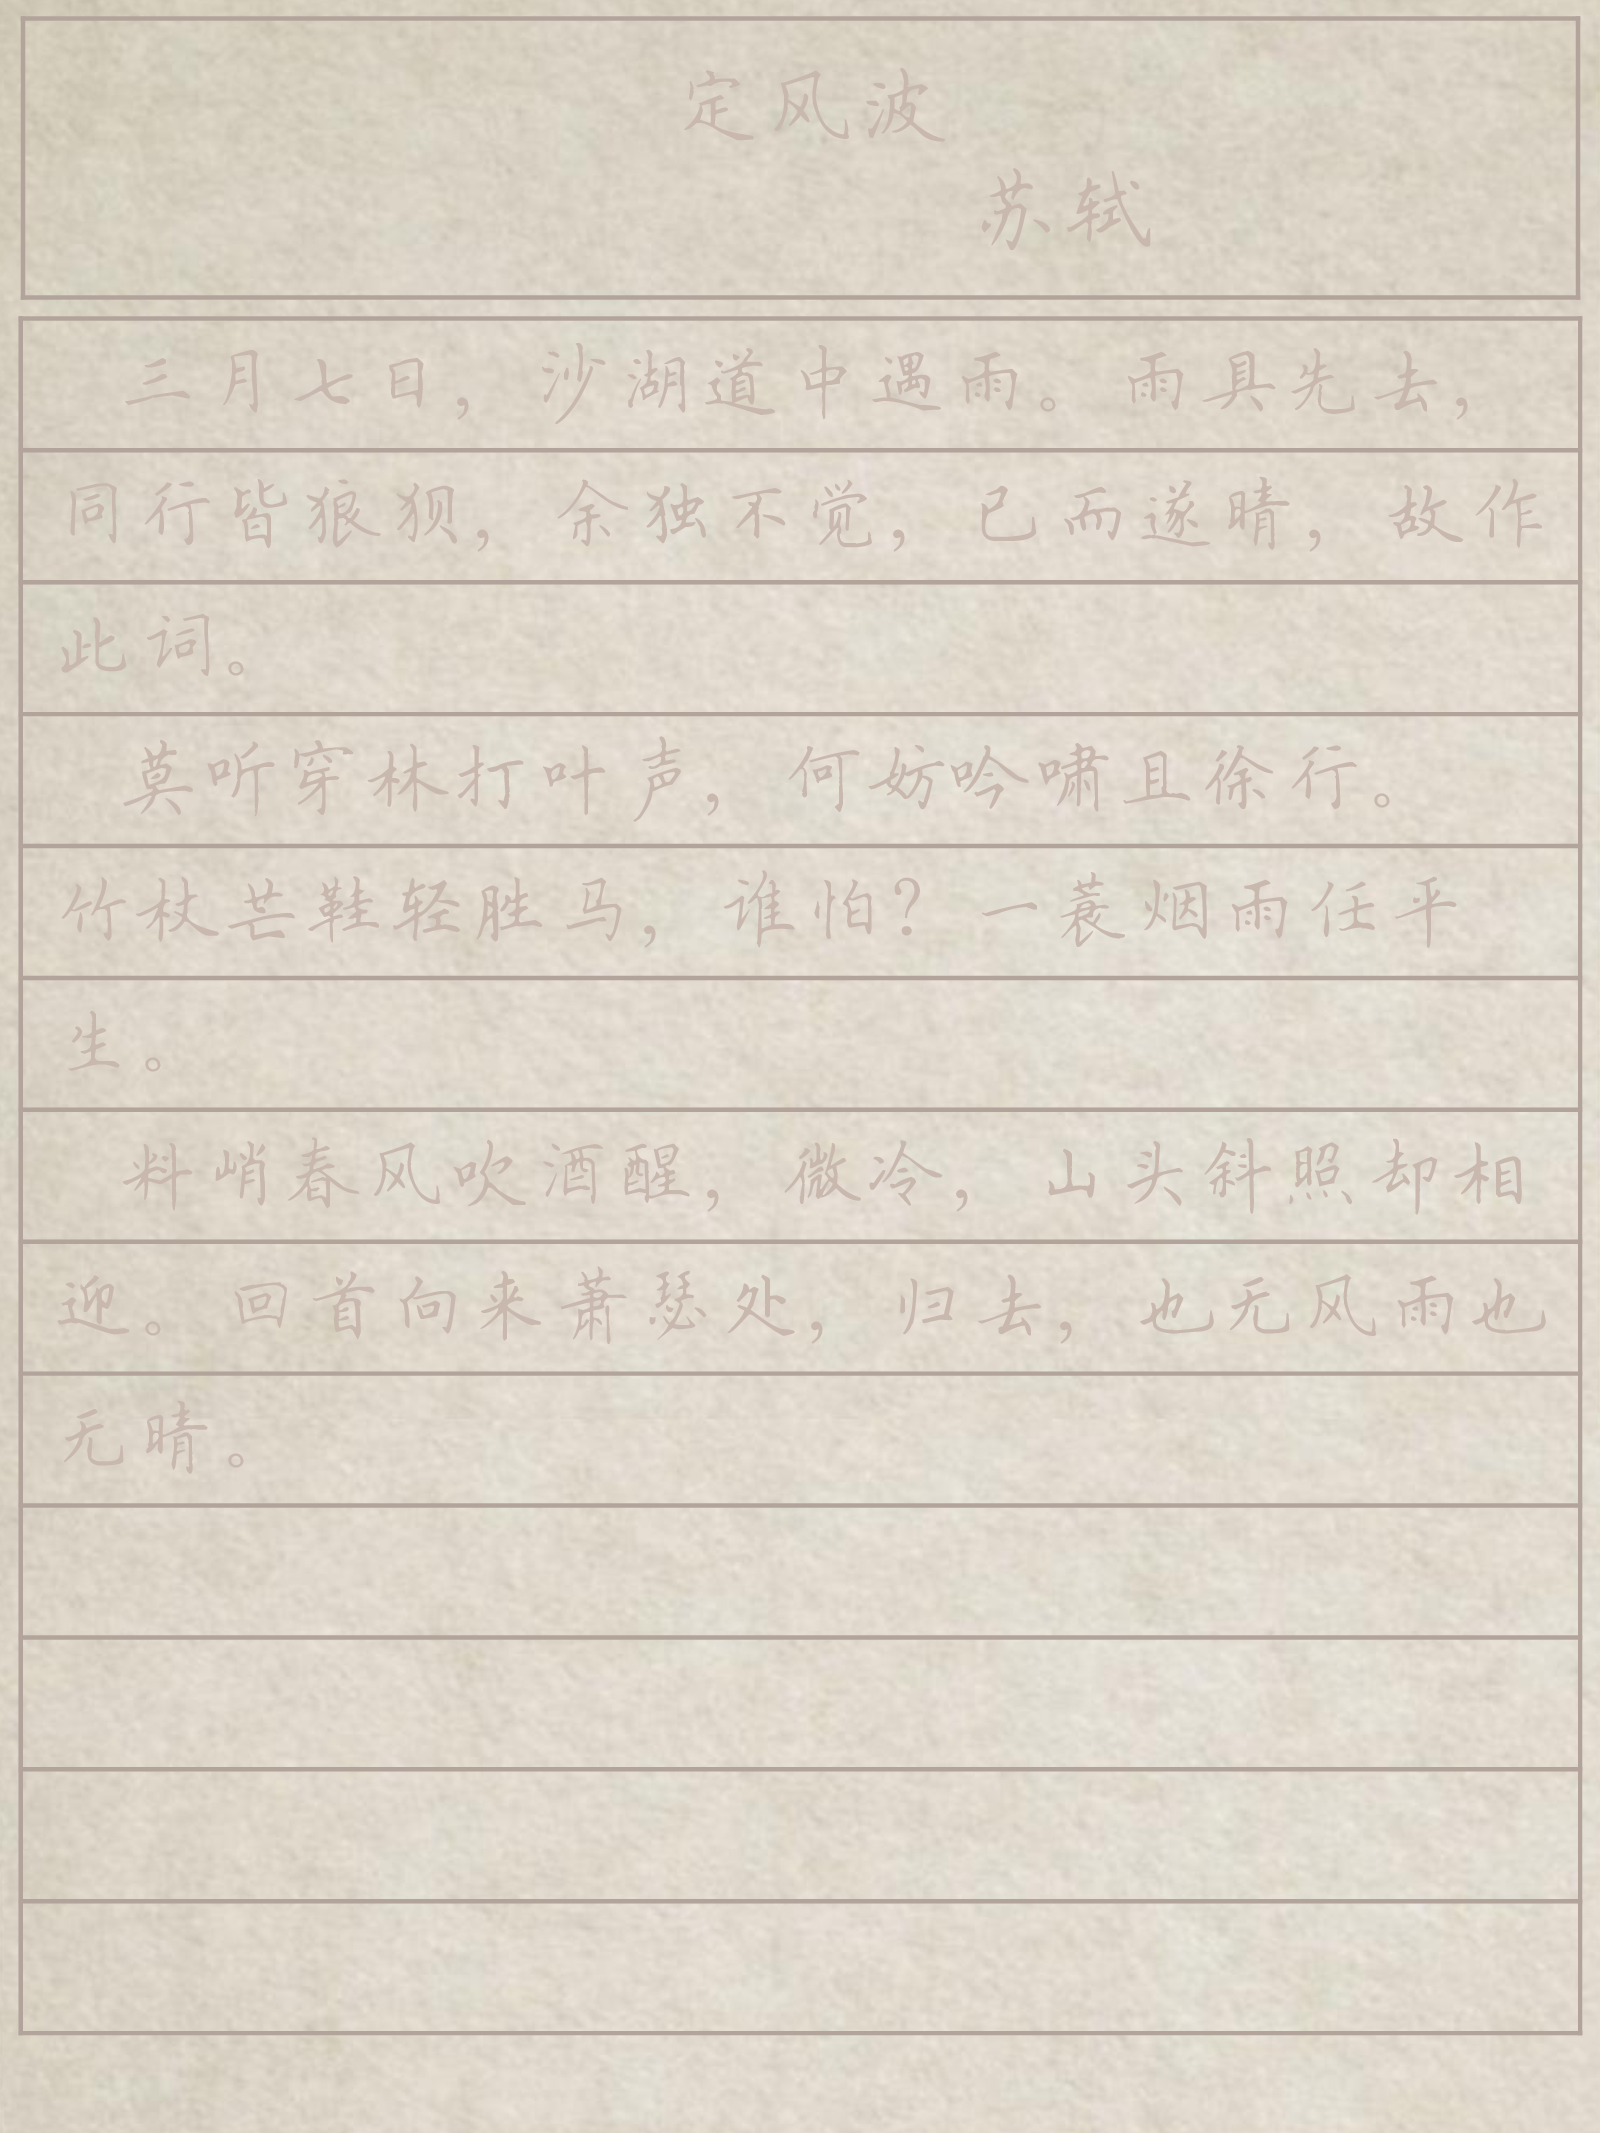 定风波
苏轼
三月七日，沙湖道中遇雨。雨具先去，
同行皆狼狈，余独不觉，已而遂晴，故作
此词。
莫听穿林打叶声，何妨吟啸且徐行。
竹杖芒鞋轻胜马，谁怕？一蓑烟雨任平
生。
料峭春风吹酒醒，微冷，山头斜照却相
迎。回首向来萧瑟处，归去，也无风雨也
无晴。